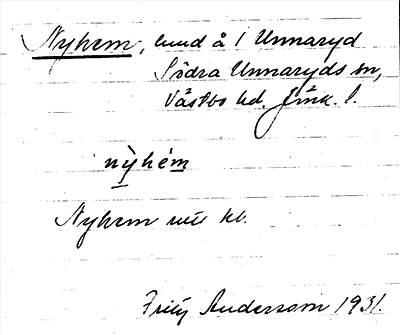 Nyhem, lund å 1 Unnaryd
Södra Unnaryds sn,
Västbo hd. Jönk. l.
nỳhém
Nyhem kl.
Fritz Andersson 1931.